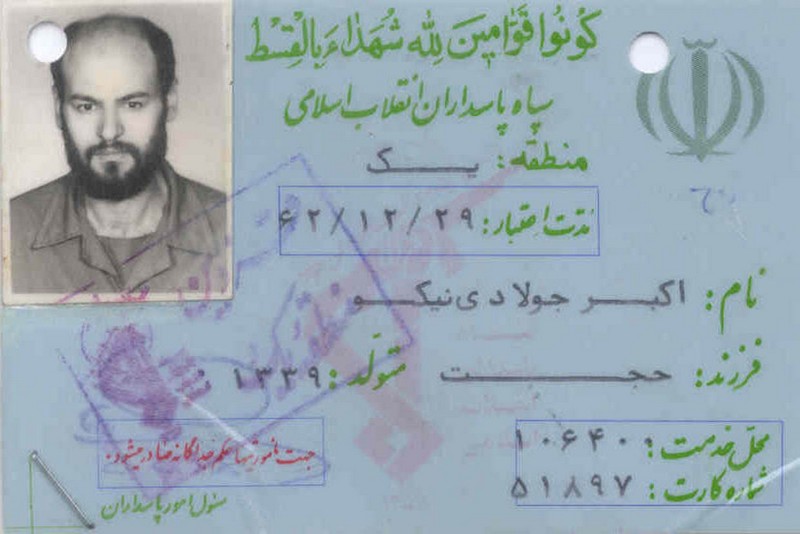 كُونُوا قَوَّامِينَ لِلَّهِ شُهَدَاءَ بِالْقِسْطِ
سپاه پاسداران انقلاب اسلامی
منطقه: یک
مدت اعتبار: ۶۲/۱۲/۲۹
نام: اکبر جولادی نیکو
فرزند: حجت
متولد: ۱۳۳۹
محل خدمت: ۱۰۶۴۰۰
شماره کارت: ۵۱۸۹۷
جهت مأموریتها حکم جداگانه صادر میشود.
مسئول امور پاسداران